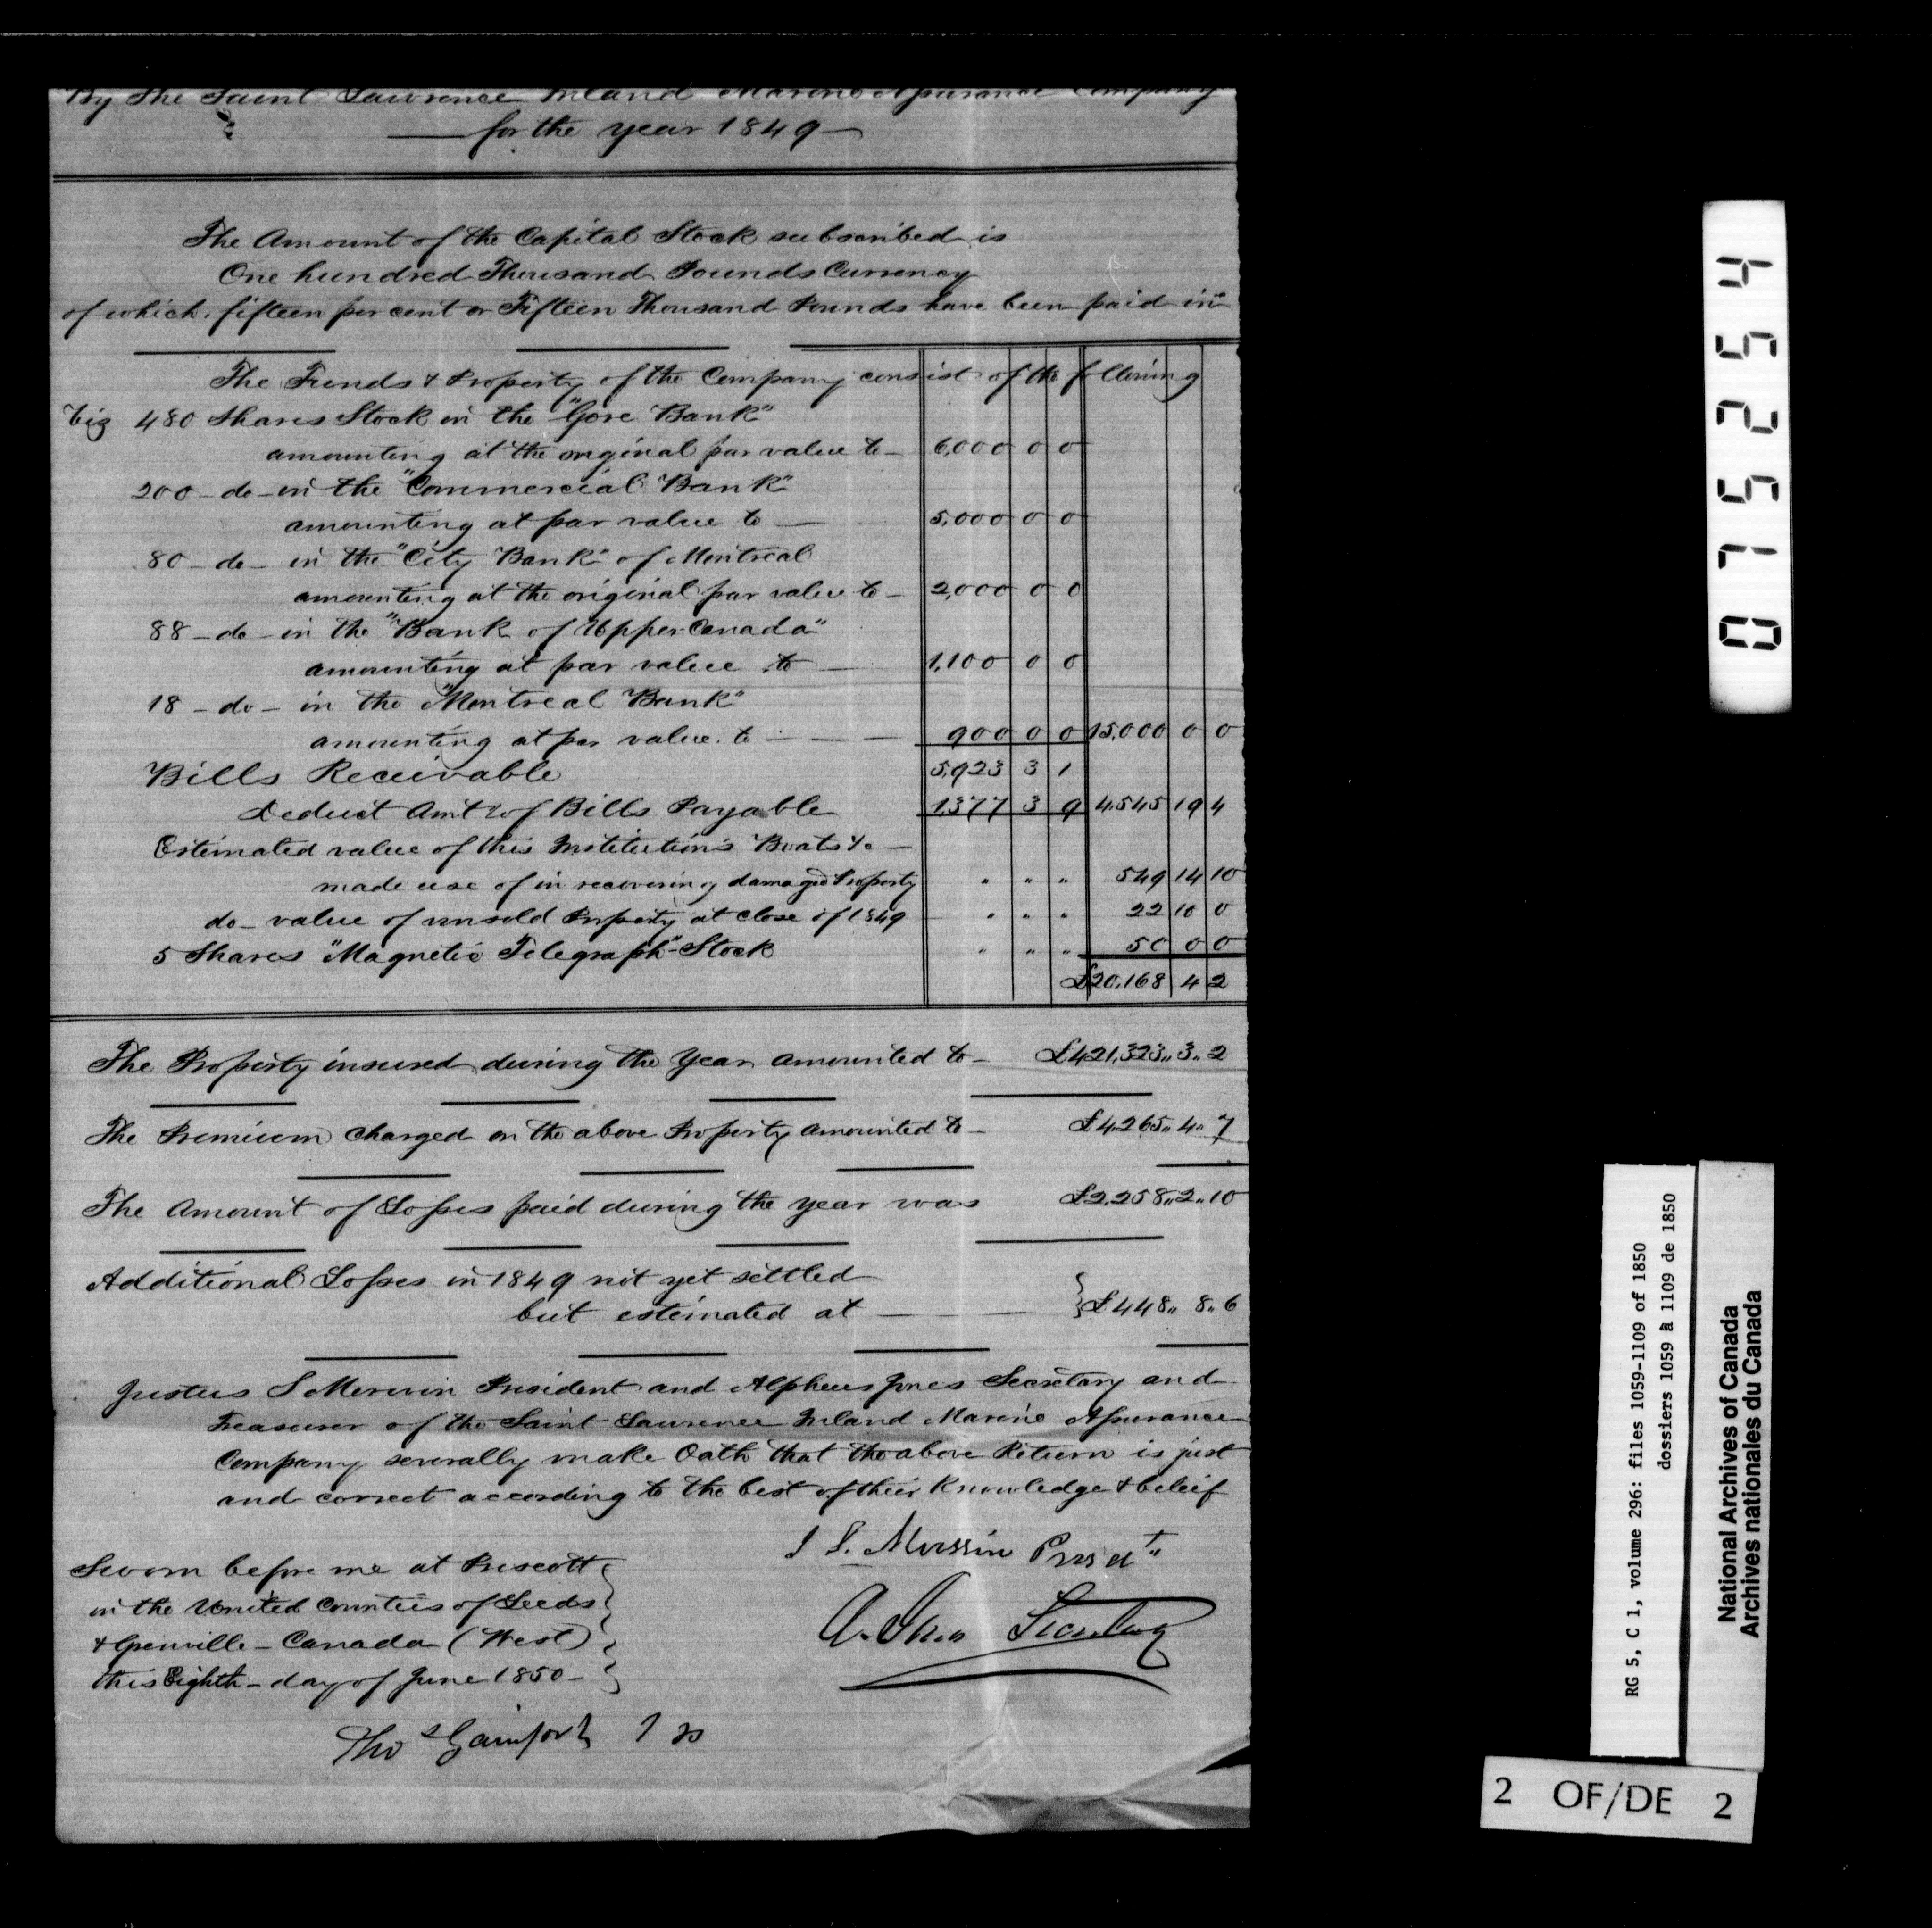 By the Saint Lawrence Inland Marine Assurance Company
for the year 1849
The Amount of the Capital Stock subscribed is
One hundred Thousand Pounds Currency
of which fifteen per cent or Fifteen Thousand Pounds have been paid in
The Funds & Property of the Company consist of the following
Viz 480 Shares Stock in the "Gore Bank"
amounting at the original par value to — 6,000 0 0
200 – do – in the "Commercial Bank"
amounting at par value to — 5,000 0 0
80 – do – in the "City Bank" of Montreal
amounting at the original par value to — 2,000 0 0
88 – do – in the "Bank of Upper Canada"
amounting at par value to — 1,100 0 0
18 – do – in the "Montreal Bank"
amounting at par value to — 900 0 0 15,000 0 0
Bills Receivable 5,923 3 1
Deduct Amt of Bills Payable 1,377 3 9 4,545 19 4
Estimated value of this Institution's Boats &c —
made use of in recovering damaged Property " " " 549 14 10
do – value of unsold Property at close of 1849 " " " 22 10 0
5 Shares "Magnetic Telegraph" Stock " " " 50 0 0
£20,168 4 2
The Property insured during the Year amounted to — £421,323,, 3,, 2
The Premium charged on the above Property amounted to — £4,265,, 4,, 7
The Amount of Losses paid during the year was £2,258,, 2,, 10
Additional Losses in 1849 not yet settled
but estimated at — £448,, 8,, 6
Justus S Merwin President and Alpheus Jones Secretary and
Treasurer of the Saint Lawrence Inland Marine Assurance
Company severally make Oath that the above Return is just
and correct according to the best of their Knowledge & beleif
J S. Merwin Presdt
A. Jones Secretary
Sworn before me at Prescott
in the United Counties of Leeds
& Grenville – Canada (West)
this Eighth – day of June 1850 –
Thos Gainfort J P
075254
RG 5, C 1, volume 296: files 1059-1109 of 1850
dossiers 1059 à 1109 de 1850
National Archives of Canada
Archives nationales du Canada
2 OF/DE 2